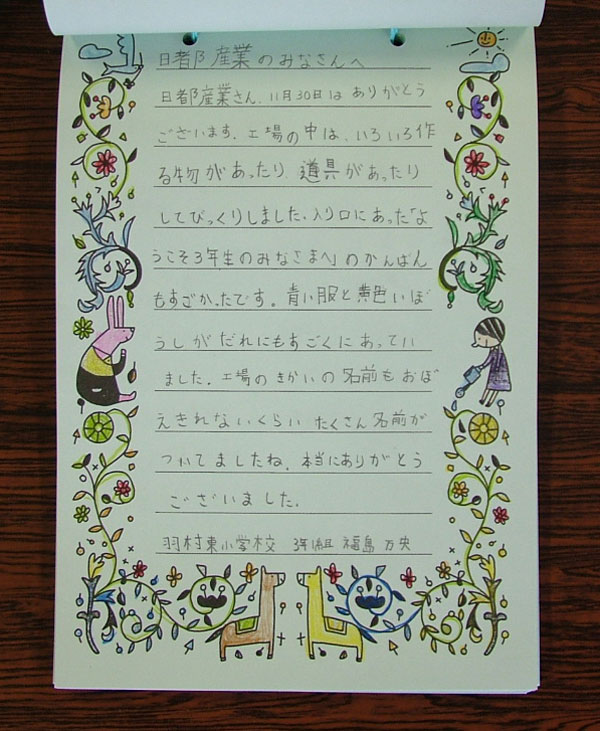 日都産業のみなさんへ
日都産業さん、11月30日は ありがとう
ございます。工場の中は、いろいろ作
る物があったり、道具があったり
してびっくりしました。入り口にあった「よ
うこそ3年生のみなさまへ」のかんばん
もすごかったです。青い服と黄色いぼ
うしが だれにもすごくにあってい
ました。工場の きかいの 名前も おぼ
えきれないくらい たくさん 名前が
ついてましたね。本当にありがとう
ございました。
羽村東小学校 3年1組 福島